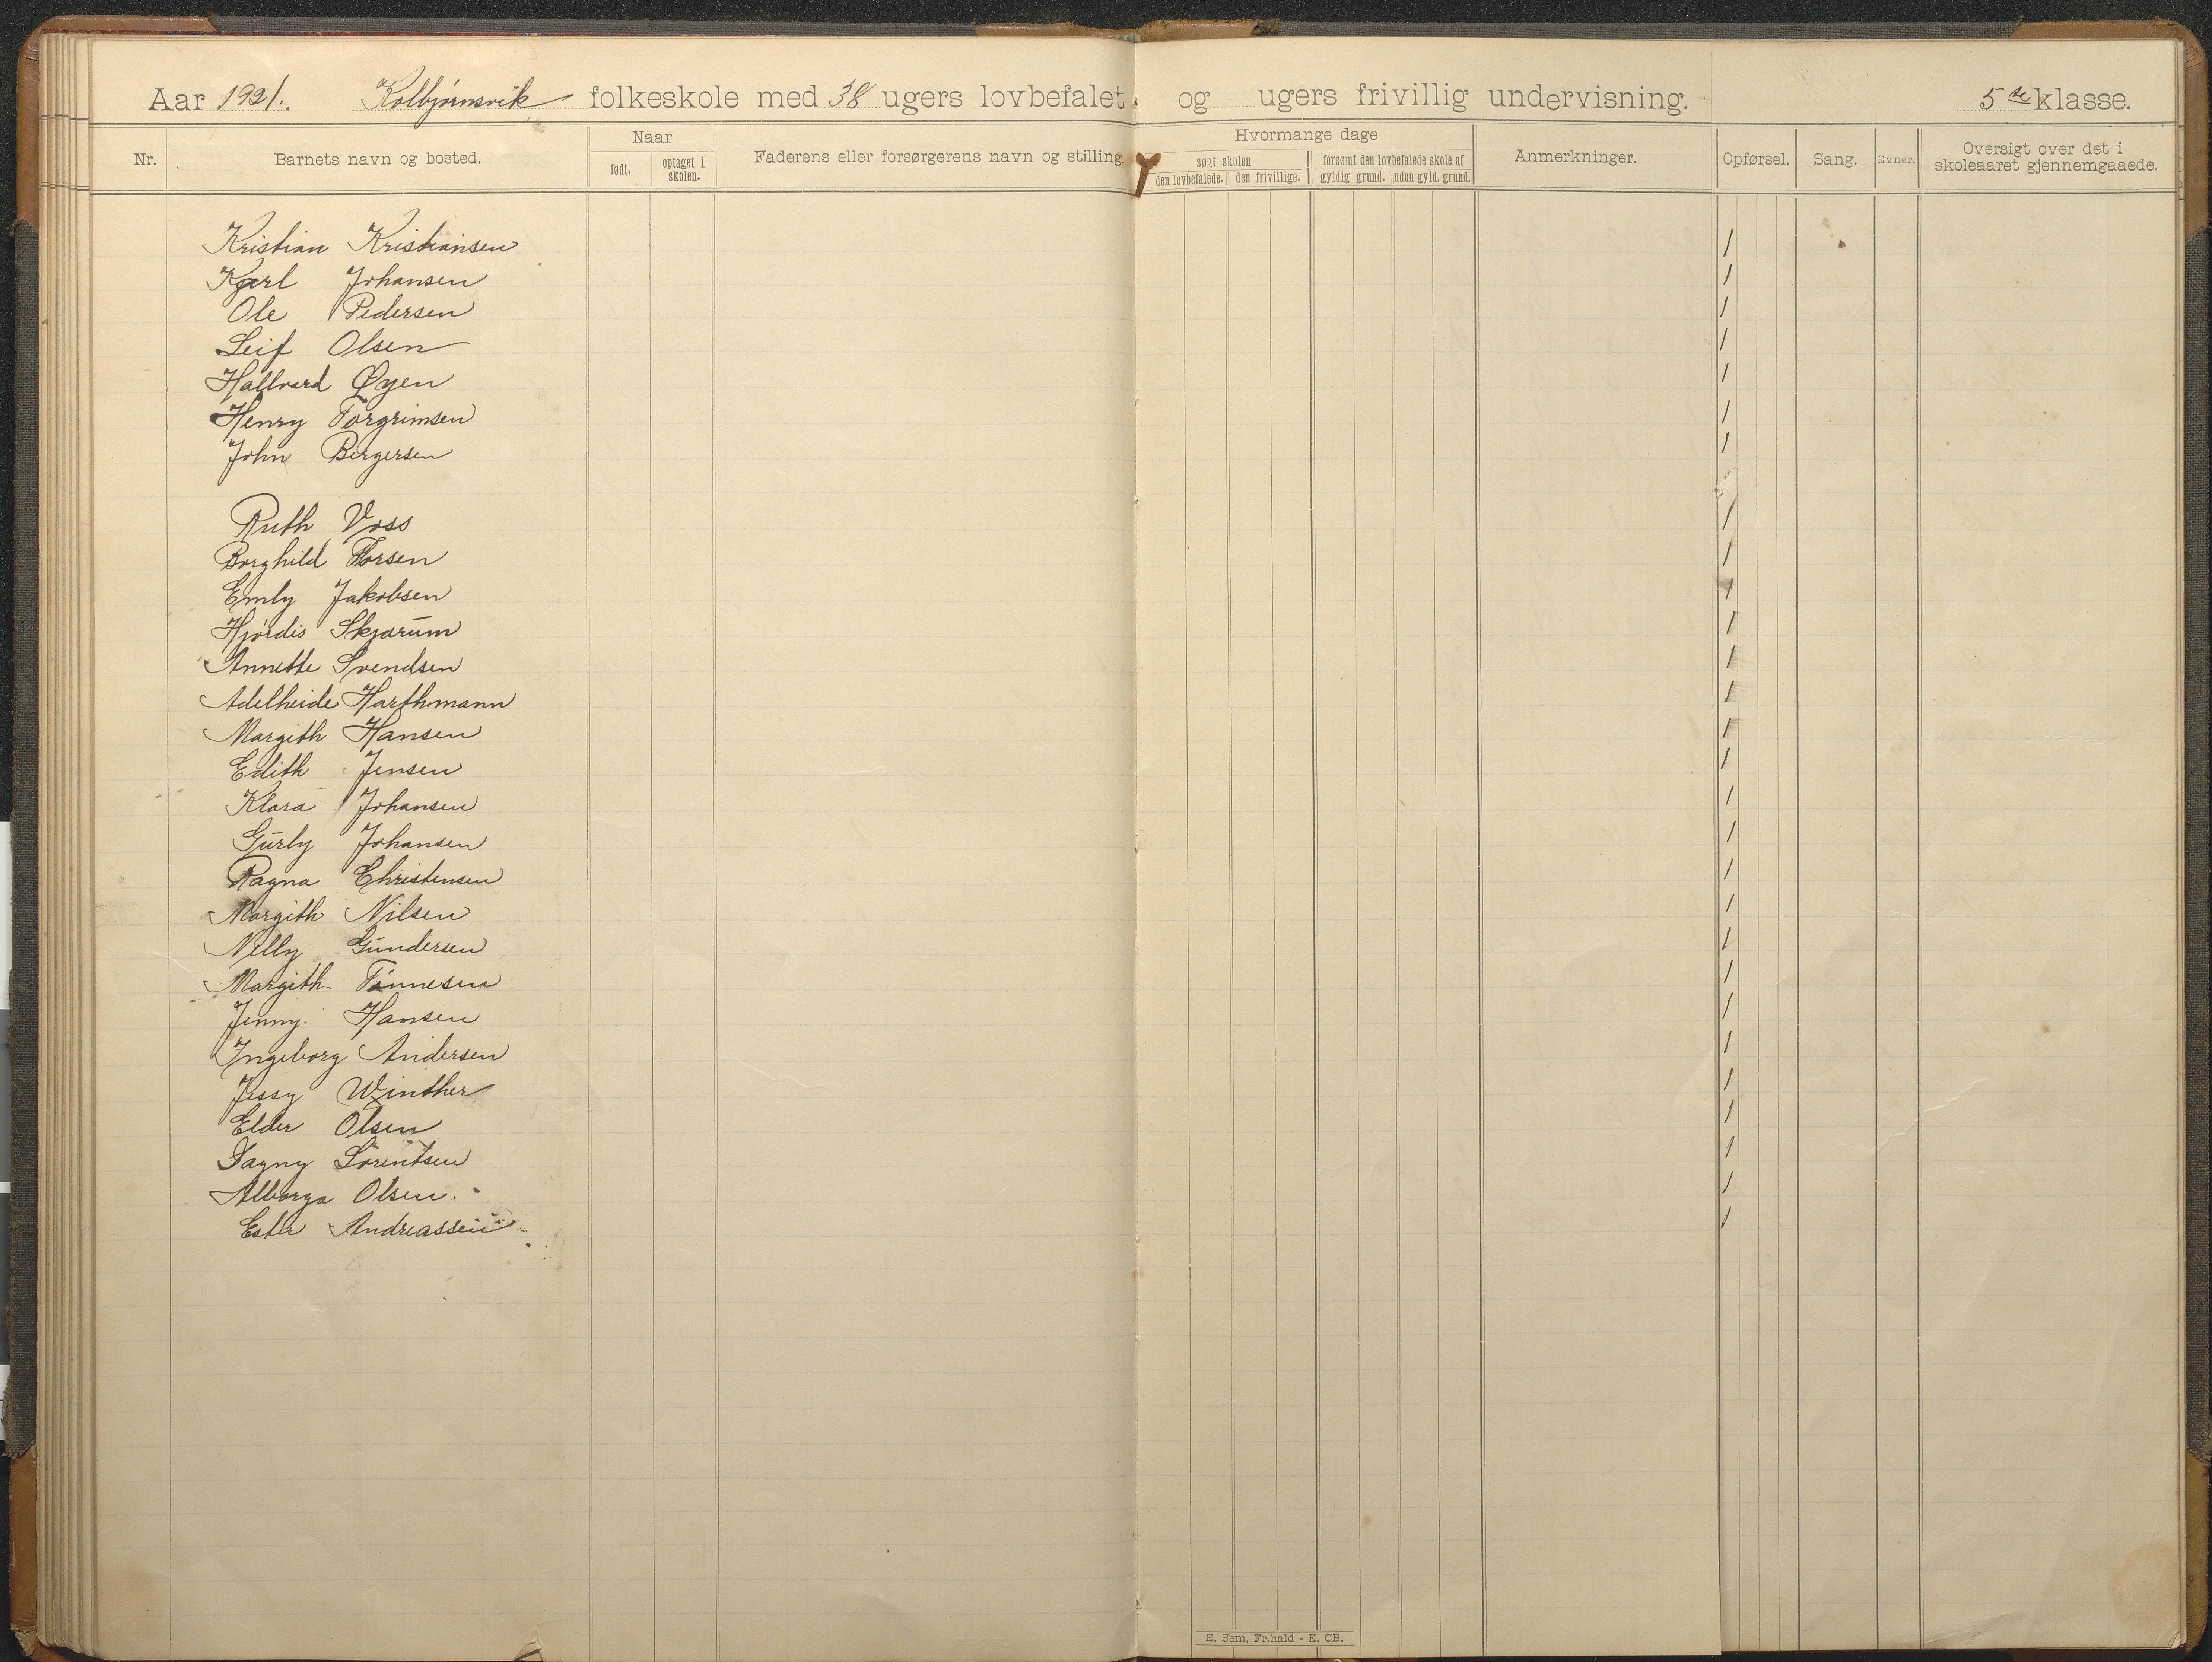 Aar 1921. Kolbjørnsvik folkeskole med 38 ugers lovbefalet og ugers frivillig undervisning. 5te klasse.
Nr. Barnets navn og bosted. Naar født. optaget i skolen. Faderens eller forsørgerens navn og stilling. Hvormange dage søgt skolen den lovbefalede. den frivillige. forsømt den lovbefalede skole af gyldig grund. uden gyld. grund. Anmerkninger. Opførsel. Sang. Evner. Oversigt over det i skoleaaret gjennemgaaede.
Kristian Kristiansen 1
Karl Johansen 1
Ole Pedersen 1
Leif Olsen 1
Hallvard Øyen 1
Henry Torgrimsen 1
John Birgersen 1
Ruth Voss 1
Borghild Thorsen 1
Emly Jakobsen 1
Hjørdis Skjærum 1
Annette Svendsen 1
Adelheide Harthmann 1
Margith Hansen 1
Edith Jensen 1
Klara Johansen 1
Gurly Johansen 1
Ragna Christensen 1
Margith Nilsen 1
Nelly Gundersen 1
Margith Tønnesen 1
Jenny Hansen 1
Ingeborg Andersen 1
Jessy Winther 1
Elder Olsen 1
Dagny Lorentsen 1
Alborga Olsen. 1
Ester Andreassen 1
E. Sem, Fr.hald - E. CB.